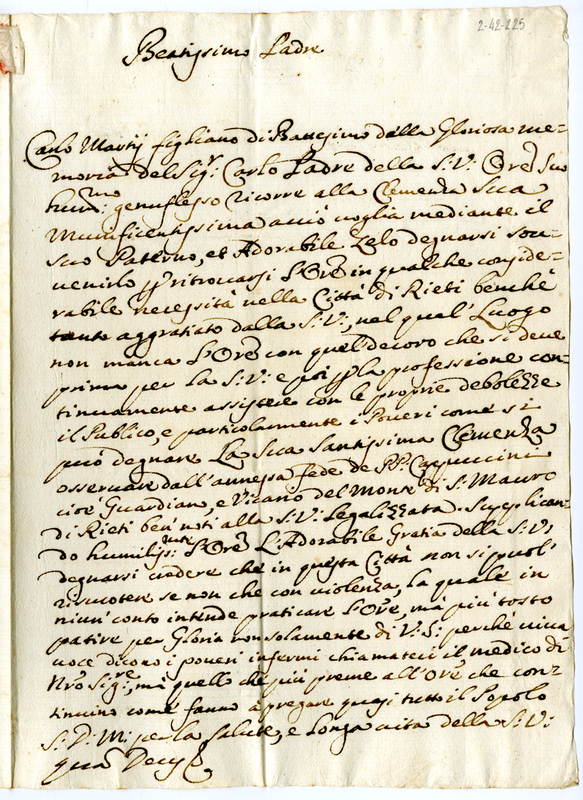 2-42-225
Beatissimo Padre
Carlo Martij figliano di Battesimo della Gloriosa me-
moria del Sig.r Carlo Padre della S.V. Ore Suo
hum.mo genuflesso ricorre alla Clemenza Sua
Munificentissima acciò voglia mediante il
suo Patterno, et Adorabile Zelo degnarsi souu-
uenirlo p ritrouarsi l'Ore in qualche conside-
rabile necessità nella Città di Rieti benche
tanto aggratiato dalla S.V., nel qual' Luogo
non manca l'Ore con quel decoro che si deue
prima per la S.V: e poi p la professione con-
tinuamente assistere con le proprie debolezze
il Publico, e particolarmente i Poueri come si
può degnare La Sua Santissima Clemenza
osseruare dall'annessa fede de PP. Cappuccini
cioè Guardian, e Vicario del Monte di S. Mauro
di Rieti ben noti alla S.V: Legalizzata. Supplican-
do humiliss:mte l'Ore L'Adorabile Gratia della S.V,
degnarsi credere che in questa Città non si puol'
riscotere se non che con violenza, la quale in
niun' conto intende praticare l'Ore, mà più tosto
patire per Gloria non solamente di V.S: perche viua
uoce dicono i poueri infermi chiamateci il medico di
Nro Sig.re, mà quello che più preme all'Ore che con-
tinuino come fanno à pregare quasi tutto il Popolo
S.D.M: per la salute, e longa uita della S.V:
qua Deus